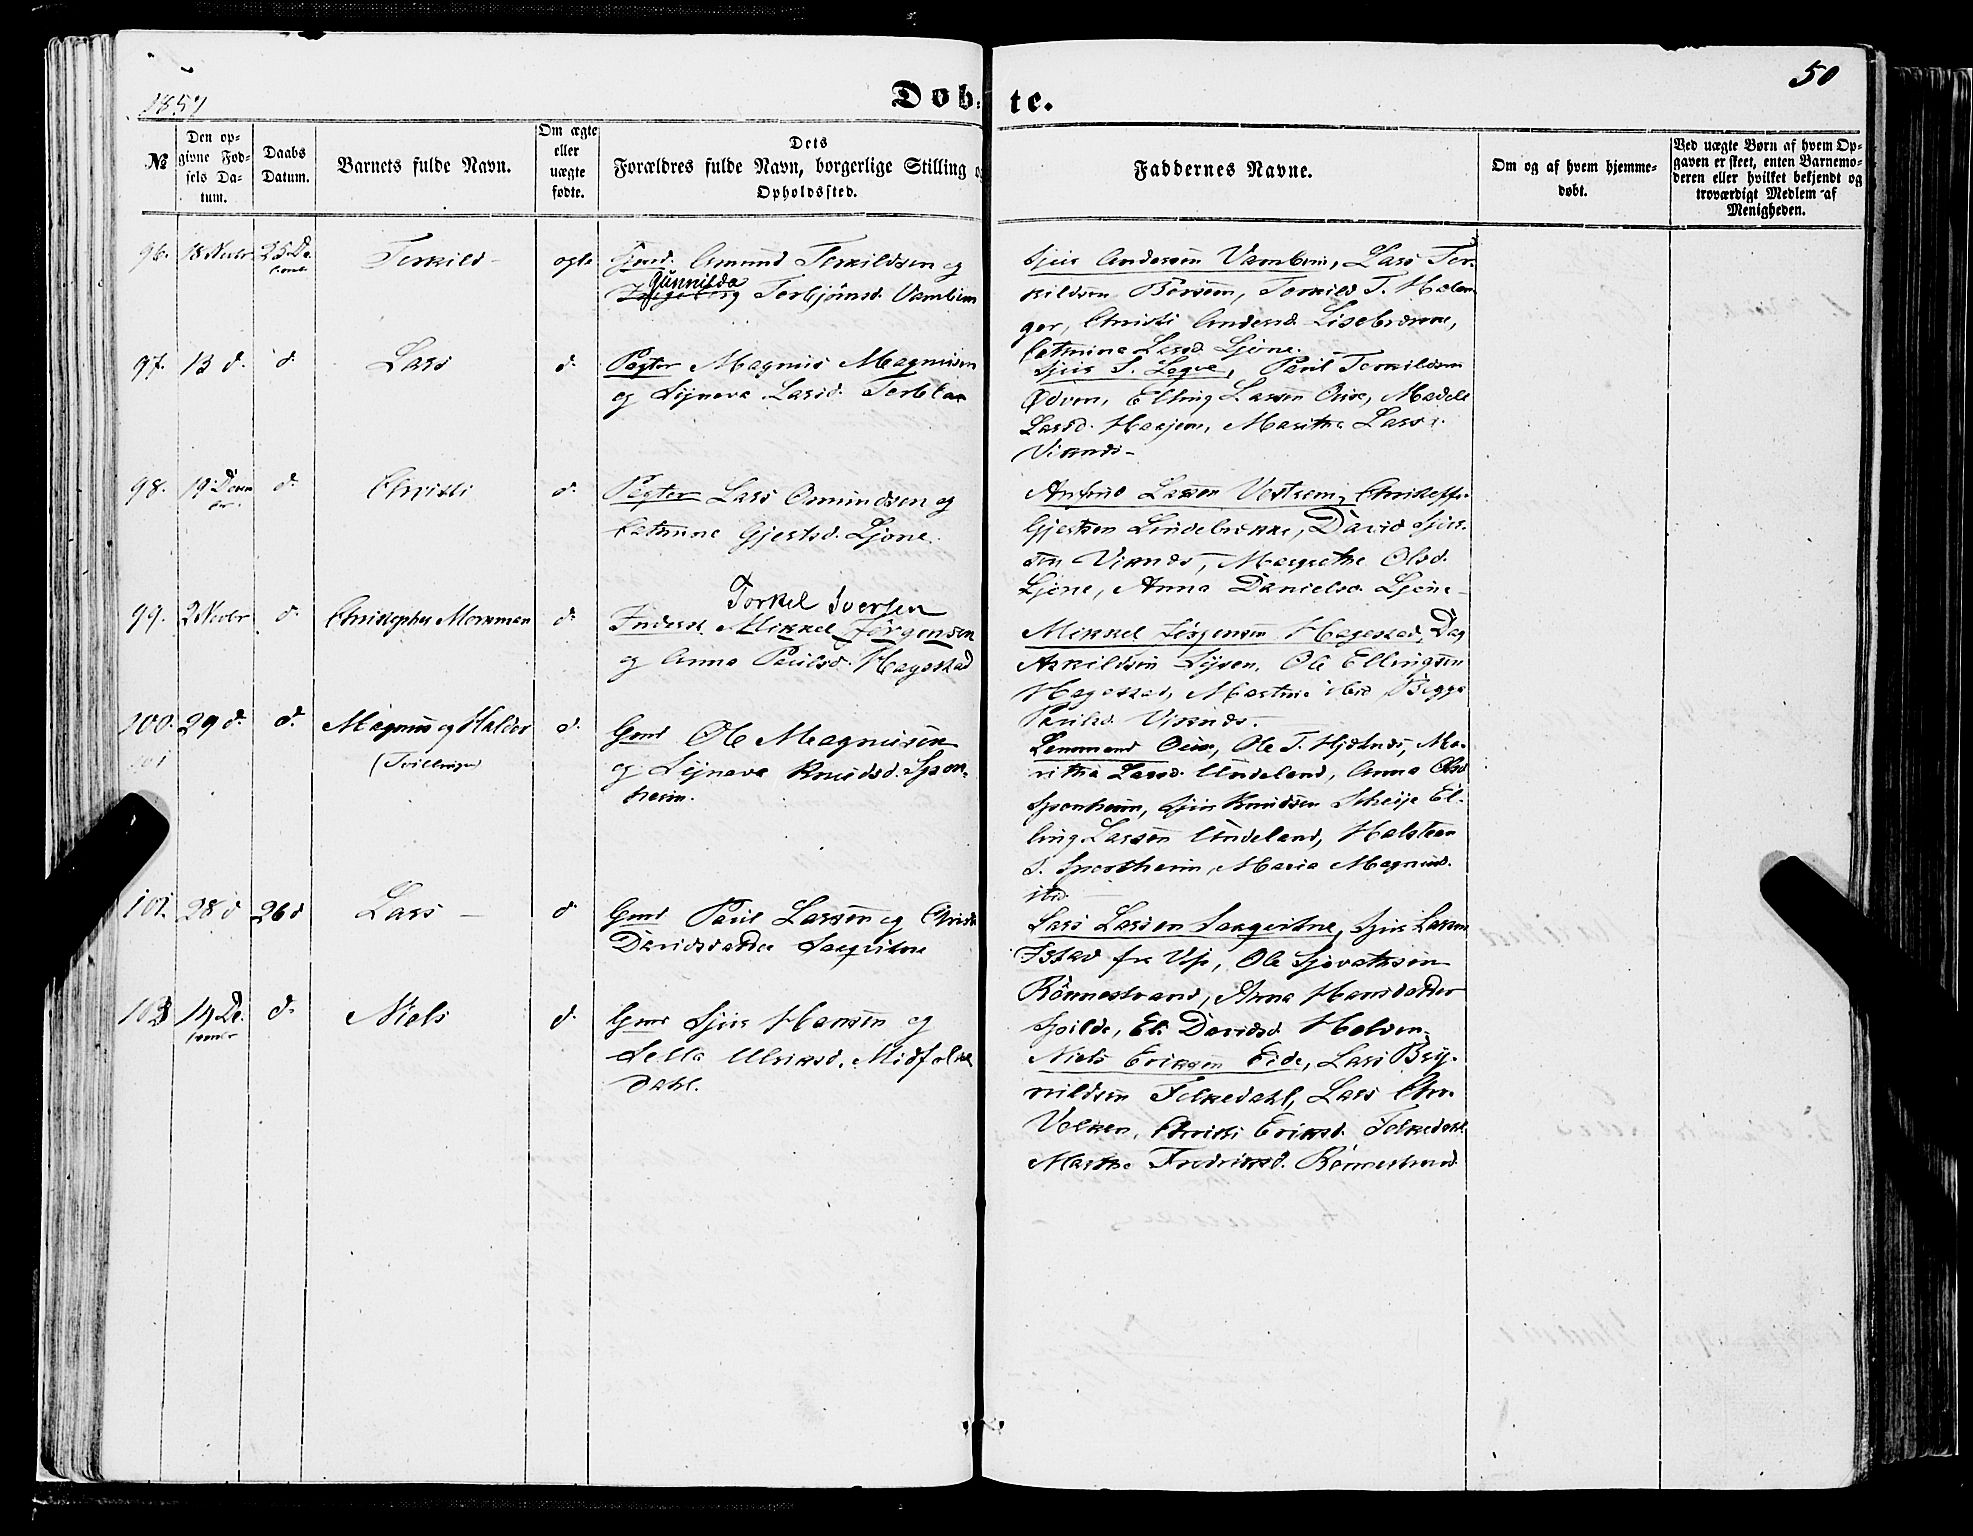 50
1857
Døb-te.
№
Den op-
givne Fød-
sels Da-
tum.
Daabs
Datum.
Barnets fulde Navn.
Om ægte
eller
uægte
fødte.
Dets
Forældres fulde Navn, borgerlige Stilling o
Opholdssted.
Faddernes Navne.
Om og af hvem hjemme-
døbt.
Ved uægte Børn af hvem Op-
gaven er skeet, enten Barnemo-
deren eller hvilket bekjendt og
troværdigt Medlem af
Menigheden.
96. 18 Novbr 25 De-
cembr
Torkild
ægte
Gmd. Amund Torkildsen og
Gunnilda
Ingeborg Torbjörnsd. Vambem
Sjur Anderson Vambem, Lars Tor-
kildsen
Torkild T.
ger, Christi Andersd.
Cathrina Larsd. Ljone.
97. 13 d. d
Lars
d.
Pagter Magnus Magnusen
og Synneva Larsd.
Sjur S. Legve, Paul Torkildsen
Ødven, Elling Larsen
Larsd. Haajem, Maritha Larsd.
Viknes
98. 19 Decem
ber
d.
Christi
d.
Pagter Lars Omundsen og
Cathrine Gjertsd. Ljone.
Larsen Vestrem, Christoffer
Gjertsen Lindebrekke, David Sjur-
sen Viknes, Margrethe Olsd.
Ljone, Anna Danielsd. Ljone
99. 2 Novbr d.
Christopher Mommen
d.
Torkel Iversen
Inderst. Mikkel Jørgensen
og Anna Paulsd. Hagestad
Mikkel Jørgensen Hagestad, Dag
Askildsen Lysen, Ole Ellingsen
Hagestad, Marthe ibid
Paulsd. Viknes.
100. 29 d. d.
101
Magnus og Haldor
(Tvillinger)
d.
Gmd Ole Magnusen
og Synneva Knudsd. Spon-
heim.
Lensmand Ole T. Hjeltnes, Ma-
ritha Larsd. Undeland, Anna Olsd
Sponheim, Sjur Knudsen El-
ling Larsen Undeland, Halsten
S. Sponheim, Maria Magnus-
ibid
102. 28 d 26 d
Lars
d
Gmd Paul Larsen og Christi
Davidsdatter Saaqvitne
Lars Larsen Saaqvitne, Sjur Larsen
fra Vos, Ole Sjovathsen
Rønnestrand, Anna Hansdatter
Spilde, Eli Davidsd.
103 14 De-
cember
d.
Niels
d.
Gmd Sjur Hansen og
Sella Ulriksd. Midfolke
dahl.
Niels Eriksen Eide, Lars Bry-
nildsen Folkedahl, Lars Chr.
Velken, Christi Eriksd. Folkedahl
Marthe Fredriksd. Rønnestrand